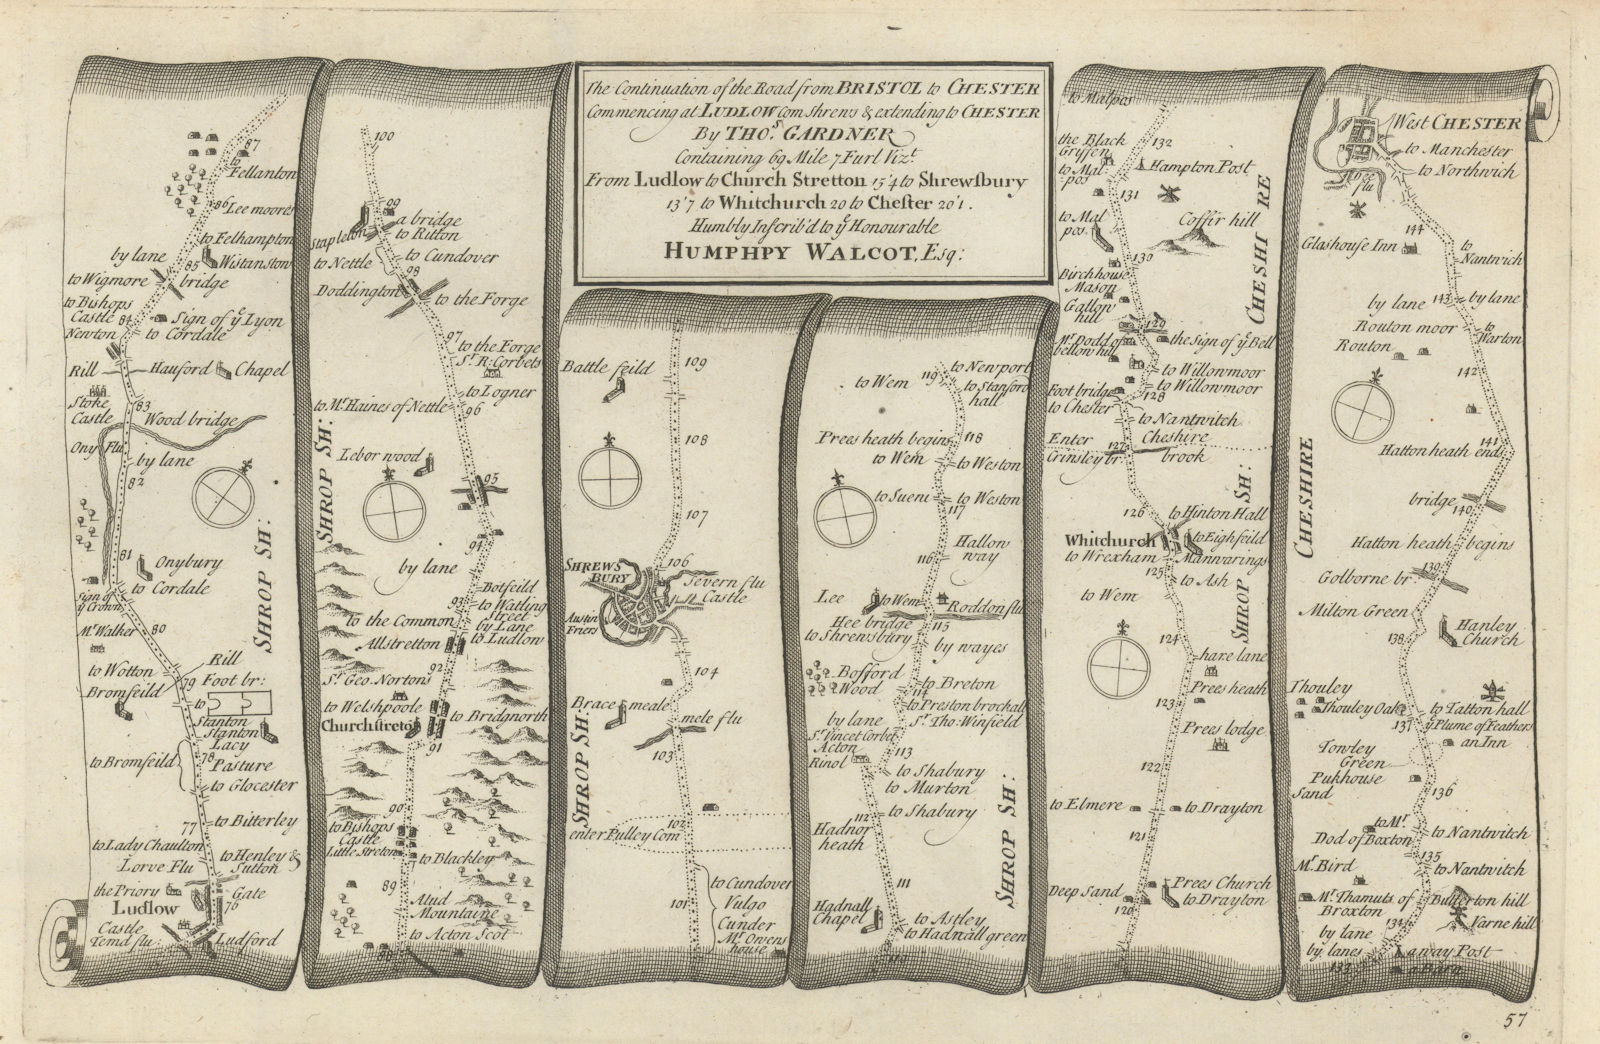 The Continuation of the Road from BRISTOL to CHESTER
Commencing at LUDLOW Com Shrews & extending to CHESTER
By THOS. GARDNER
Containing 69 Mile 7 Furl Vizt.
From Ludlow to Church Stretton 15'4 to Shrewsbury
13'7 to Whitchurch 20 to Chester 20'1.
Humbly Inscrib'd to ye Honourable
HUMPHPY WALCOT, Esq:
87
to Fellanton
86
Lee moores
to Felhampton
Wistanstow
by lane
85
to Wigmore
bridge
to Bishops
Castle
84
Sign of ye Lyon
Newton
to Cordale
Rill
Hauford Chapel
Stoke
Castle
83
Wood bridge
Ony Flu
by lane
82
81
Onybury
to Cordale
Sign of
ye Crown
Mr Walker
80
Rill
to Wotton
79
Foot br:
Bromfeild
to
Stanton
Stanton
Lacy
78
to Bromfeild
Pasture
to Glocester
77
to Bitterley
to Lady Chaulton
to Henley &
Sutton
Lorve Flu
the Priory
Gate
76
Ludlow
Castle
Temd flu
Ludford
SHROP SH:
100
99
a bridge
Stapleton
to Ritton
to Nettle
to Cundover
98
Doddington
to the Forge
97
to the Forge
Sr R: Corbets
to Logner
to Mr Haines of Nettle
96
Lebor wood
95
94
by lane
Botfeild
93
to Watling
Street
to the Common
by Lane
Allstretton
to Ludlow
92
Sr Geo. Nortons
to Welshpoole
to Bridgnorth
Churchstreton
91
90
to Bishops
Castle
Little Streton
to Blackley
89
Atud
Mountaine
to Acton Scot
88
SHROP SH:
109
Battle feild
108
107
106
SHREWS
BURY
Severn flu
Castle
Austin
Friers
104
Brace meale
mele flu
103
102
enter Pulley Com
to Cundover
Vulgo
101
Cunder
Mr Owens
house
SHROP SH:
to Newport
119
to Wem
to Stanford
hall
Prees heath begins
118
to Wem
to Weston
to Sueni
to Weston
117
Hallon
way
116
Lee
to Wem
Roddon flu
Hee bridge
115
to Shrewsbury
by wayes
Bofford
Wood
to Breton
114
to Preston brochall
by lane
Sr Tho: Winfield
Sr Vincet Corbet
Acton
Rinol
113
to Shabury
to Murton
112
to Shabury
Hadnor
heath
111
Hadnall
Chapel
to Astley
to Hadnall green
110
SHROP SH:
to Malpas
132
the Black
Gryffen
Hampton Post
to Mal
pos
131
to Mal
pos
Coffir hill
130
Birchhouse
Mason
Gallow
hill
129
Mr Dodd of
bellow hill
the Sign of ye Bell
to Willowmoor
Foot bridge
to Willowmoor
128
to Chester
to Nantwitch
Enter
Cheshire
127
Crinsley br
brook
126
to Hinton Hall
Whitchurch
to Eighfeild
to Wrexham
Manwarings
125
to Ash
to Wem
124
hare lane
Prees heath
123
Prees lodge
122
to Elmere
to Drayton
121
Deep Sand
Prees Church
to Drayton
120
CHESHIRE
SHROP SH:
West CHESTER
to Manchester
to Northwich
Dee
flu
144
Glashouse Inn
to
Nantwich
by lane
143
by lane
Routon moor
to
Warton
Routon
142
141
Hatton heath ends
bridge
140
Hatton heath begins
139
Golborne br
Milton Green
Hanley
Church
138
Thouley
Thouley Oake
to Tatton hall
137
ye Plume of Feathers
Towley
Green
an Inn
Pukhouse
Sand
136
to Mr
Dod of Boxton
to Nantwitch
135
Mr. Bird
to Nantwitch
Mr Thamuts of
Broxton
Butterton hill
134
Varne hill
by lane
by lanes
away Post
133
a Barn
CHESHIRE
57